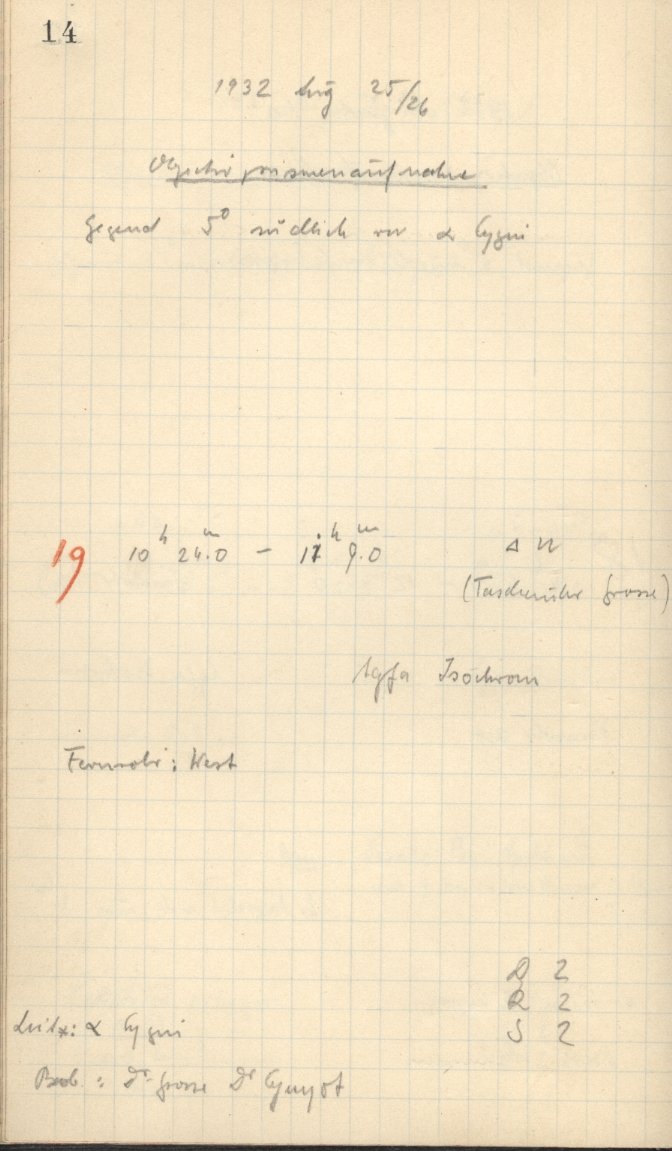 14
1932 Aug 25/26
Objectivprismenaufnahme
Gegend 5° südlich von α Cygni
19 10h 24m.0 — 11h 9m.0 Δ u
(Taschenuhr Grosse)
Agfa Isochrom
Fernrohr: West
D 2
R 2
S 2
Leit*: α Cygni
Beob.: Dr. Grosse Dr